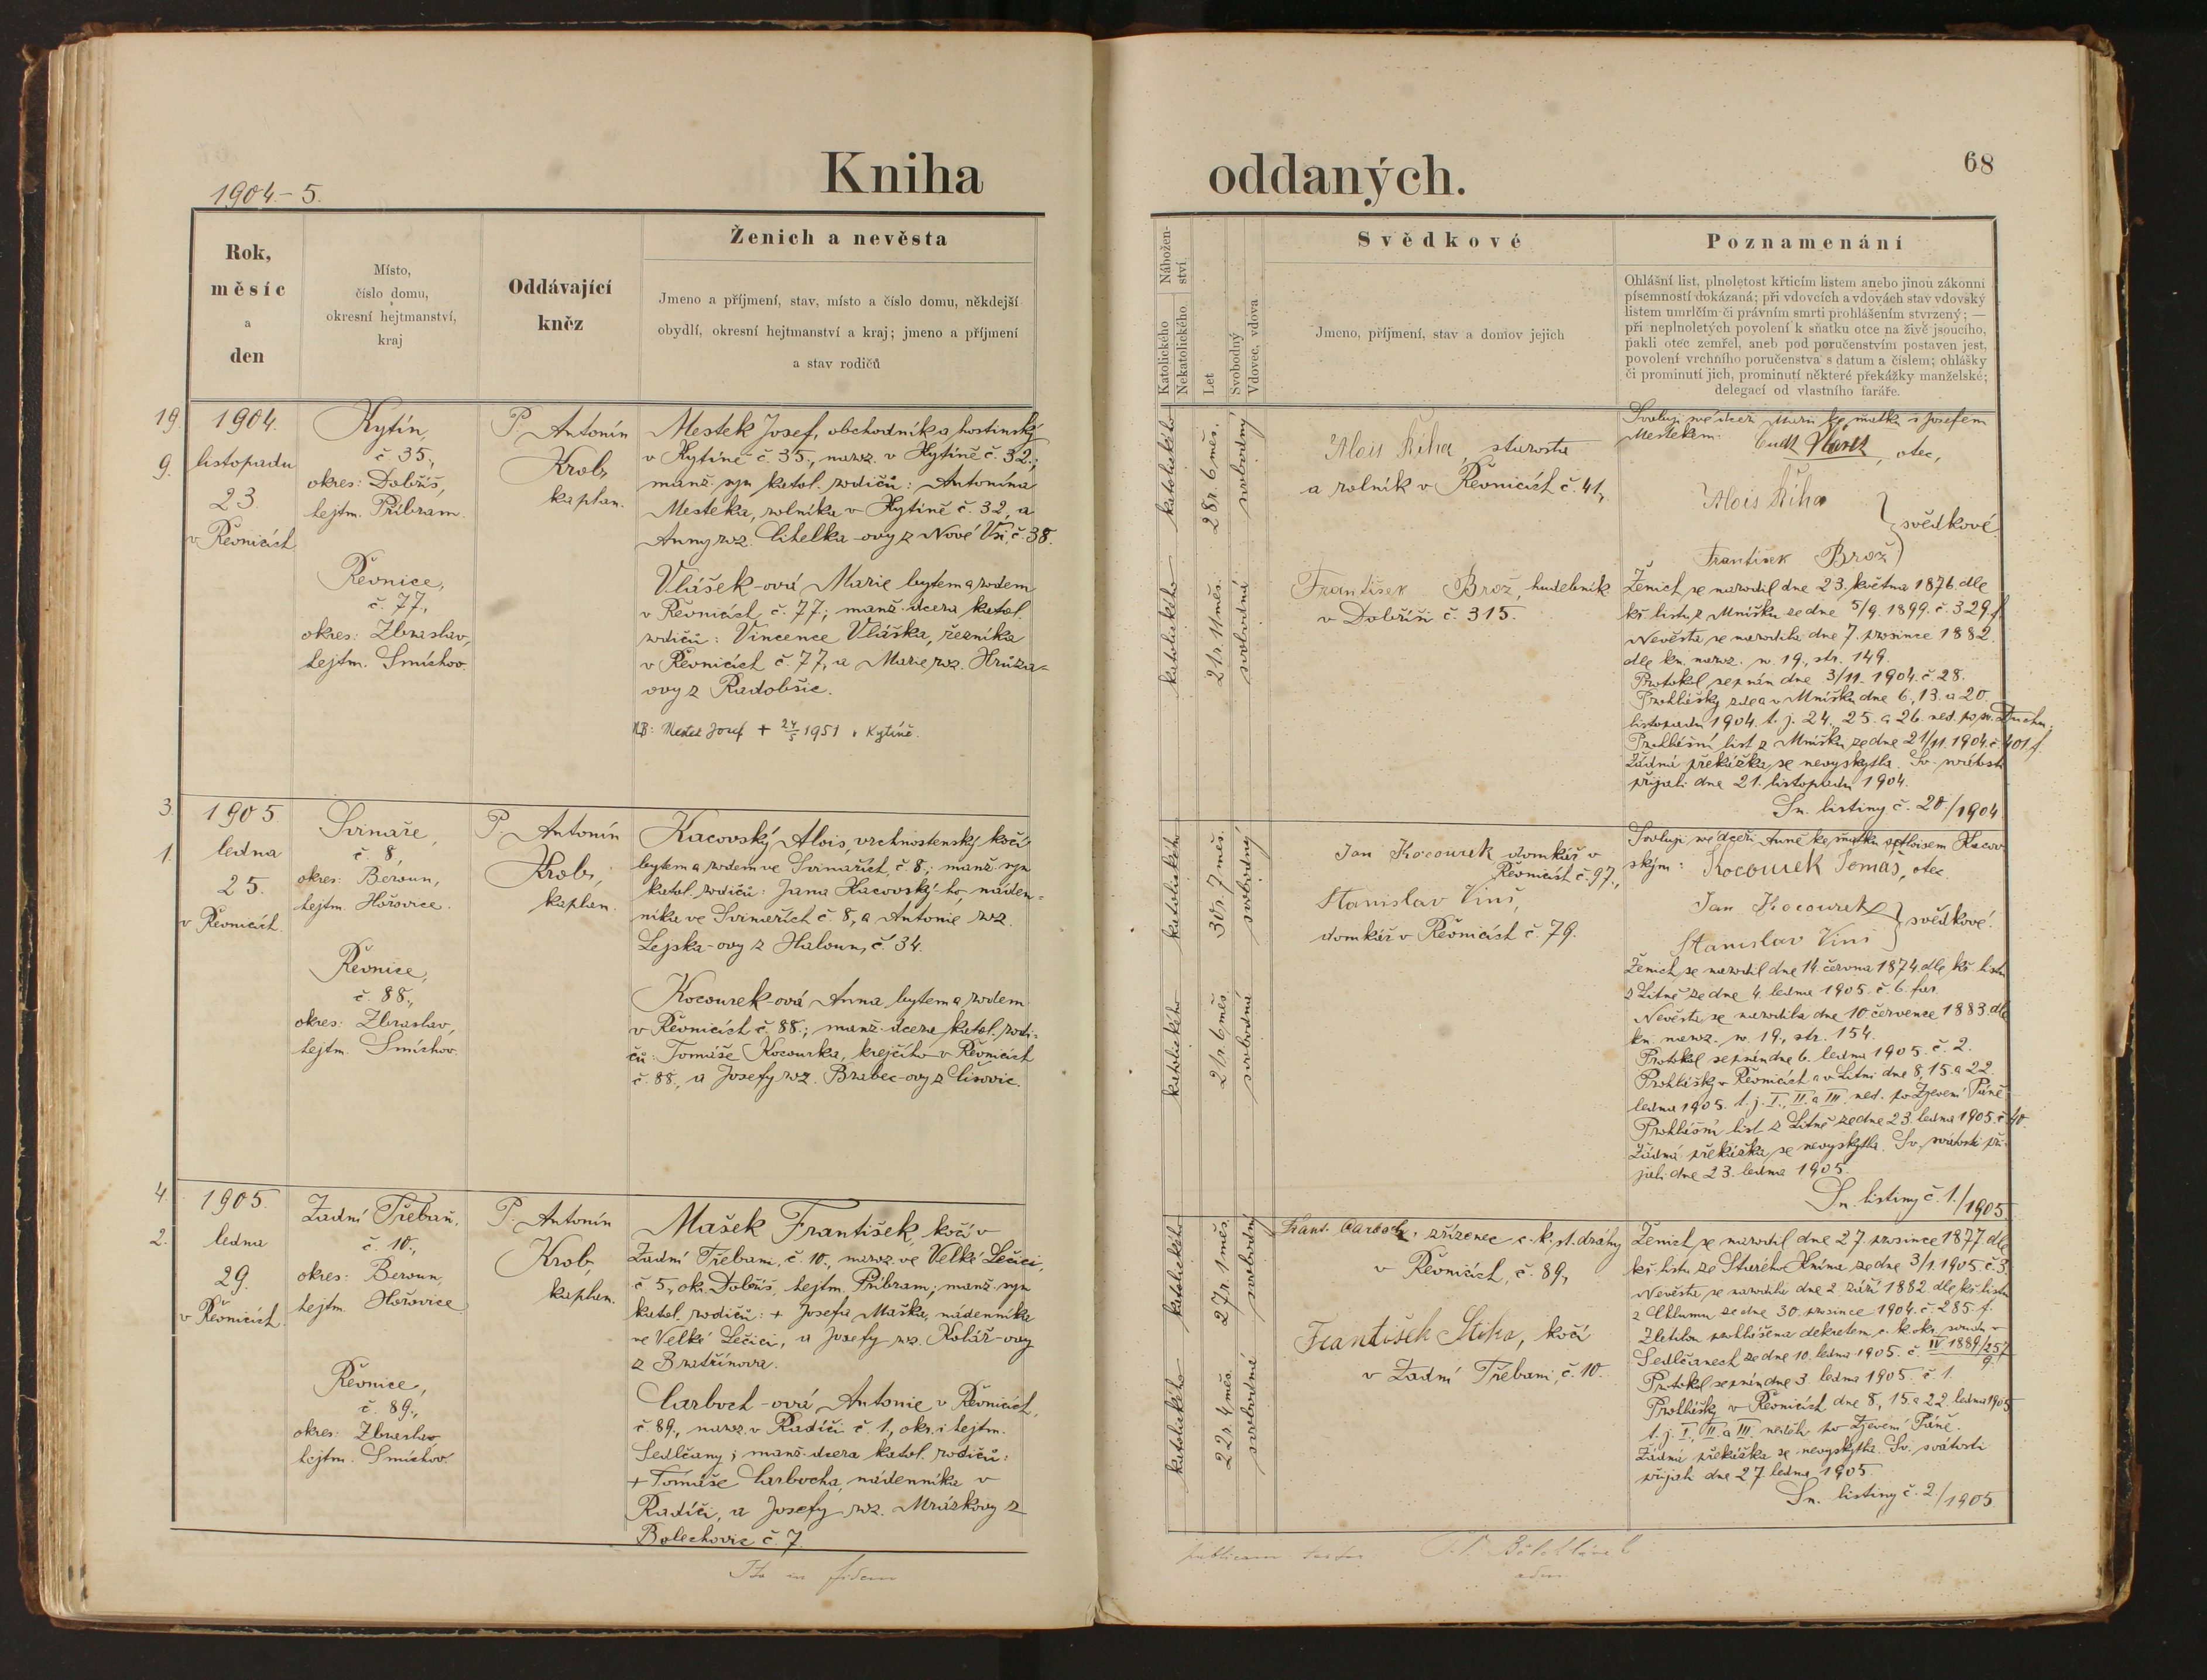 1904.-5.
Kniha
oddaných.
68
Rok,
měsíc
a
den
Místo,
číslo domu,
okresní hejtmanství,
kraj
Oddávající
kněz
Ženich a nevěsta
Jmeno a příjmení, stav, místo a číslo domu, někdejší
obydlí, okresní hejtmanství a kraj; jmeno a příjmení
a stav rodičů
Nábožen-
ství
Katolického
Nekatolického
Let
Svobodný
Vdovec, vdova
Svědkové
Jmeno, příjmení, stav a domov jejich
Poznamenání
Ohlášní list, plnoletost křticím listem anebo jinou zákonní
písemností dokázaná; při vdovcích a vdovách stav vdovský
listem umrlčím či právním smrti prohlášením stvrzený; —
při neplnoletých povolení k sňatku otce na živě jsoucího,
pakli otec zemřel, aneb pod poručenstvím postaven jest,
povolení vrchního poručenstva s datum a číslem; ohlášky
či prominutí jich, prominutí některé překážky manželské;
delegací od vlastního faráře.
19.
9.
1904.
listopadu
23.
v Řevnicích
Kytín,
č 35.,
okres: Dobříš,
hejtm. Příbram.
Řevnice,
č. 77.,
okres: Zbraslav,
hejtm. Smíchov.
P. Antonín
Krob,
kaplan.
Mestek Josef, obchodník a hostinský
v Kytíně č. 35., naroz. v Kytíně č. 32.;
manž. syn katol. rodičů: Antonína
Mesteka, rolníka v Kytíně č. 32, a
Anny roz. Citelka-ovy z Nové Vsi č. 38.
Vlášek-ová Marie bytem a rodem
v Řevnicích č. 77.; manž. dcera katol.
rodičů: Vincence Vláška, řezníka
v Řevnicích č. 77, a Marie roz. Hrůza-
ovy z Radobšic.
NB: Mestek Josef + 24/5 1951 v Kytíně.
katolického
28 r. 6 měs.
svobodný
katolického
21 r. 11 měs.
svobodná
Alois Říha, starosta
a rolník v Řevnicích č. 41,
František Brož, hudebník
v Dobříši č. 315.
Svoluji své dceři Marii ke sňatku s Josefem
Mestekem: , otec,
Alois Říha
svědkové.
František Brož
Ženich se narodil dne 23. května 1876. dle
kř. listu z Mníšku ze dne 5/9. 1899. č. 329 f.
Nevěsta se narodila dne 7. prosince 1882.
dle kn. naroz. w. 19., str. 149.
Protokol sepsán dne 3/11. 1904. č. 28.
Prohlášky zde a v Mníšku dne 6., 13. a 20.
listopadu 1904. t. j. 24., 25. a 26. ned. po sv. Duchu.
Prohlášní list z Mníšku ze dne 21/11. 1904. č. 401 f.
Žádná překážka se nevyskytla. Sv. svátosti
přijali dne 21. listopadu 1904.
Sn. listiny č. 20./1904.
3.
1.
1905.
ledna
25.
v Řevnicích.
Svinaře,
č. 8,
okres: Beroun,
hejtm. Hořovice.
Řevnice,
č. 88.,
okres: Zbraslav,
hejtm. Smíchov.
P. Antonín
Krob,
kaplan.
Kacovský Alois, vrchnostenský kočí
bytem a rodem ve Svinařích, č. 8.; manž. syn
katol. rodičů: Jana Kacovský-ho, náden-
níka ve Svinařích č. 8, a Antonie roz.
Lejska-ovy z Haloun, č. 34.
Kocourek-ová Anna bytem a rodem
v Řevnicích č. 88.; manž. dcera katol. rodi-
čů: Tomáše Kocourka, krejčího v Řevnicích
č. 88., a Josefy roz. Brabec-ovy z Lisovic.
katolického
30 r. 7 měs.
svobodný
katolického
21 r. 6 měs.
svobodná
Jan Kocourek domkář v
Řevnicích č. 97.,
Stanislav Vinš,
domkář v Řevnicích č. 79.
Svoluji své dceři Anně ke sňatku s Aloisem Kacov-
ským: Kocourek Tomáš, otec.
Jan Kocourek
svědkové.
Stanislav Vinš
Ženich se narodil dne 14. června 1874. dle kř. listu
z Litně ze dne 4. ledna 1905. č. 6. far.
Nevěsta se narodila dne 10. července 1883. dle
kn. naroz. w. 19., str. 154.
Protokol sepsán dne 6. ledna 1905. č. 2.
Prohlášky v Řevnicích a v Litni dne 8., 15. a 22.
ledna 1905. t. j. I., II. a III. ned. po Zjevení Páně.
Prohlášní list z Litně ze dne 23. ledna 1905. č. 40.
Žádná překážka se nevyskytla. Sv. svátosti při-
jali dne 23. ledna 1905.
Sn. listiny č. 1./1905.
4.
2.
1905.
ledna
29.
v Řevnicích.
Zadní Třebaň,
č. 10.,
okres: Beroun,
hejtm. Hořovice
Řevnice,
č. 89.,
okres: Zbraslav
hejtm. Smíchov
P. Antonín
Krob,
kaplan.
Mašek František, kočí v
Zadní Třebani, č. 10., naroz. ve Velké Lečici,
č 5., ok. Dobříš, hejtm. Příbram; manž. syn
katol. rodičů: + Josefa Maška, nádenníka
ve Velké Lečici, a Josefy roz. Kolář-ovy
z Bratřínova.
Carboch-ová Antonie v Řevnicích,
č. 89., naroz. v Radíči č. 1., okr. i hejtm.
Sedlčany; manž. dcera katol. rodičů:
+ Tomáše Carbocha, nádenníka v
Radíči, a Josefy roz. Mrázkovy z
Bolechovic č. 7.
katolického
27 r. 1 měs.
svobodný
katolického
22 r. 4 měs.
svobodná
Frant. Carboch, zřízenec c. k. st. dráhy
v Řevnicích, č. 89,
František Stika, kočí
v Zadní Třebani, č. 10.
Ženich se narodil dne 27. prosince 1877. dle
kř. listu ze Starého Knína ze dne 3/1. 1905. č. 3.
Nevěsta se narodila dne 2. září 1882. dle kř. listu
z Chlumu ze dne 30. prosince 1904. č. 285 f.
Zletilou prohlášena dekretem c. k. okr. soudu v
Sedlčanech ze dne 10. ledna 1905. č. IV 1889/257
9.
Protokol sepsán dne 3. ledna 1905. č. 1.
Prohlášky v Řevnicích dne 8., 15. a 22. ledna 1905
t. j. I., II. a III. neděli po Zjevení Páně.
Žádná překážka se nevyskytla. Sv. svátosti
přijali dne 27. ledna 1905.
Sn. listiny č. 2./1905.
Ita in fidem
publicam testor
adm